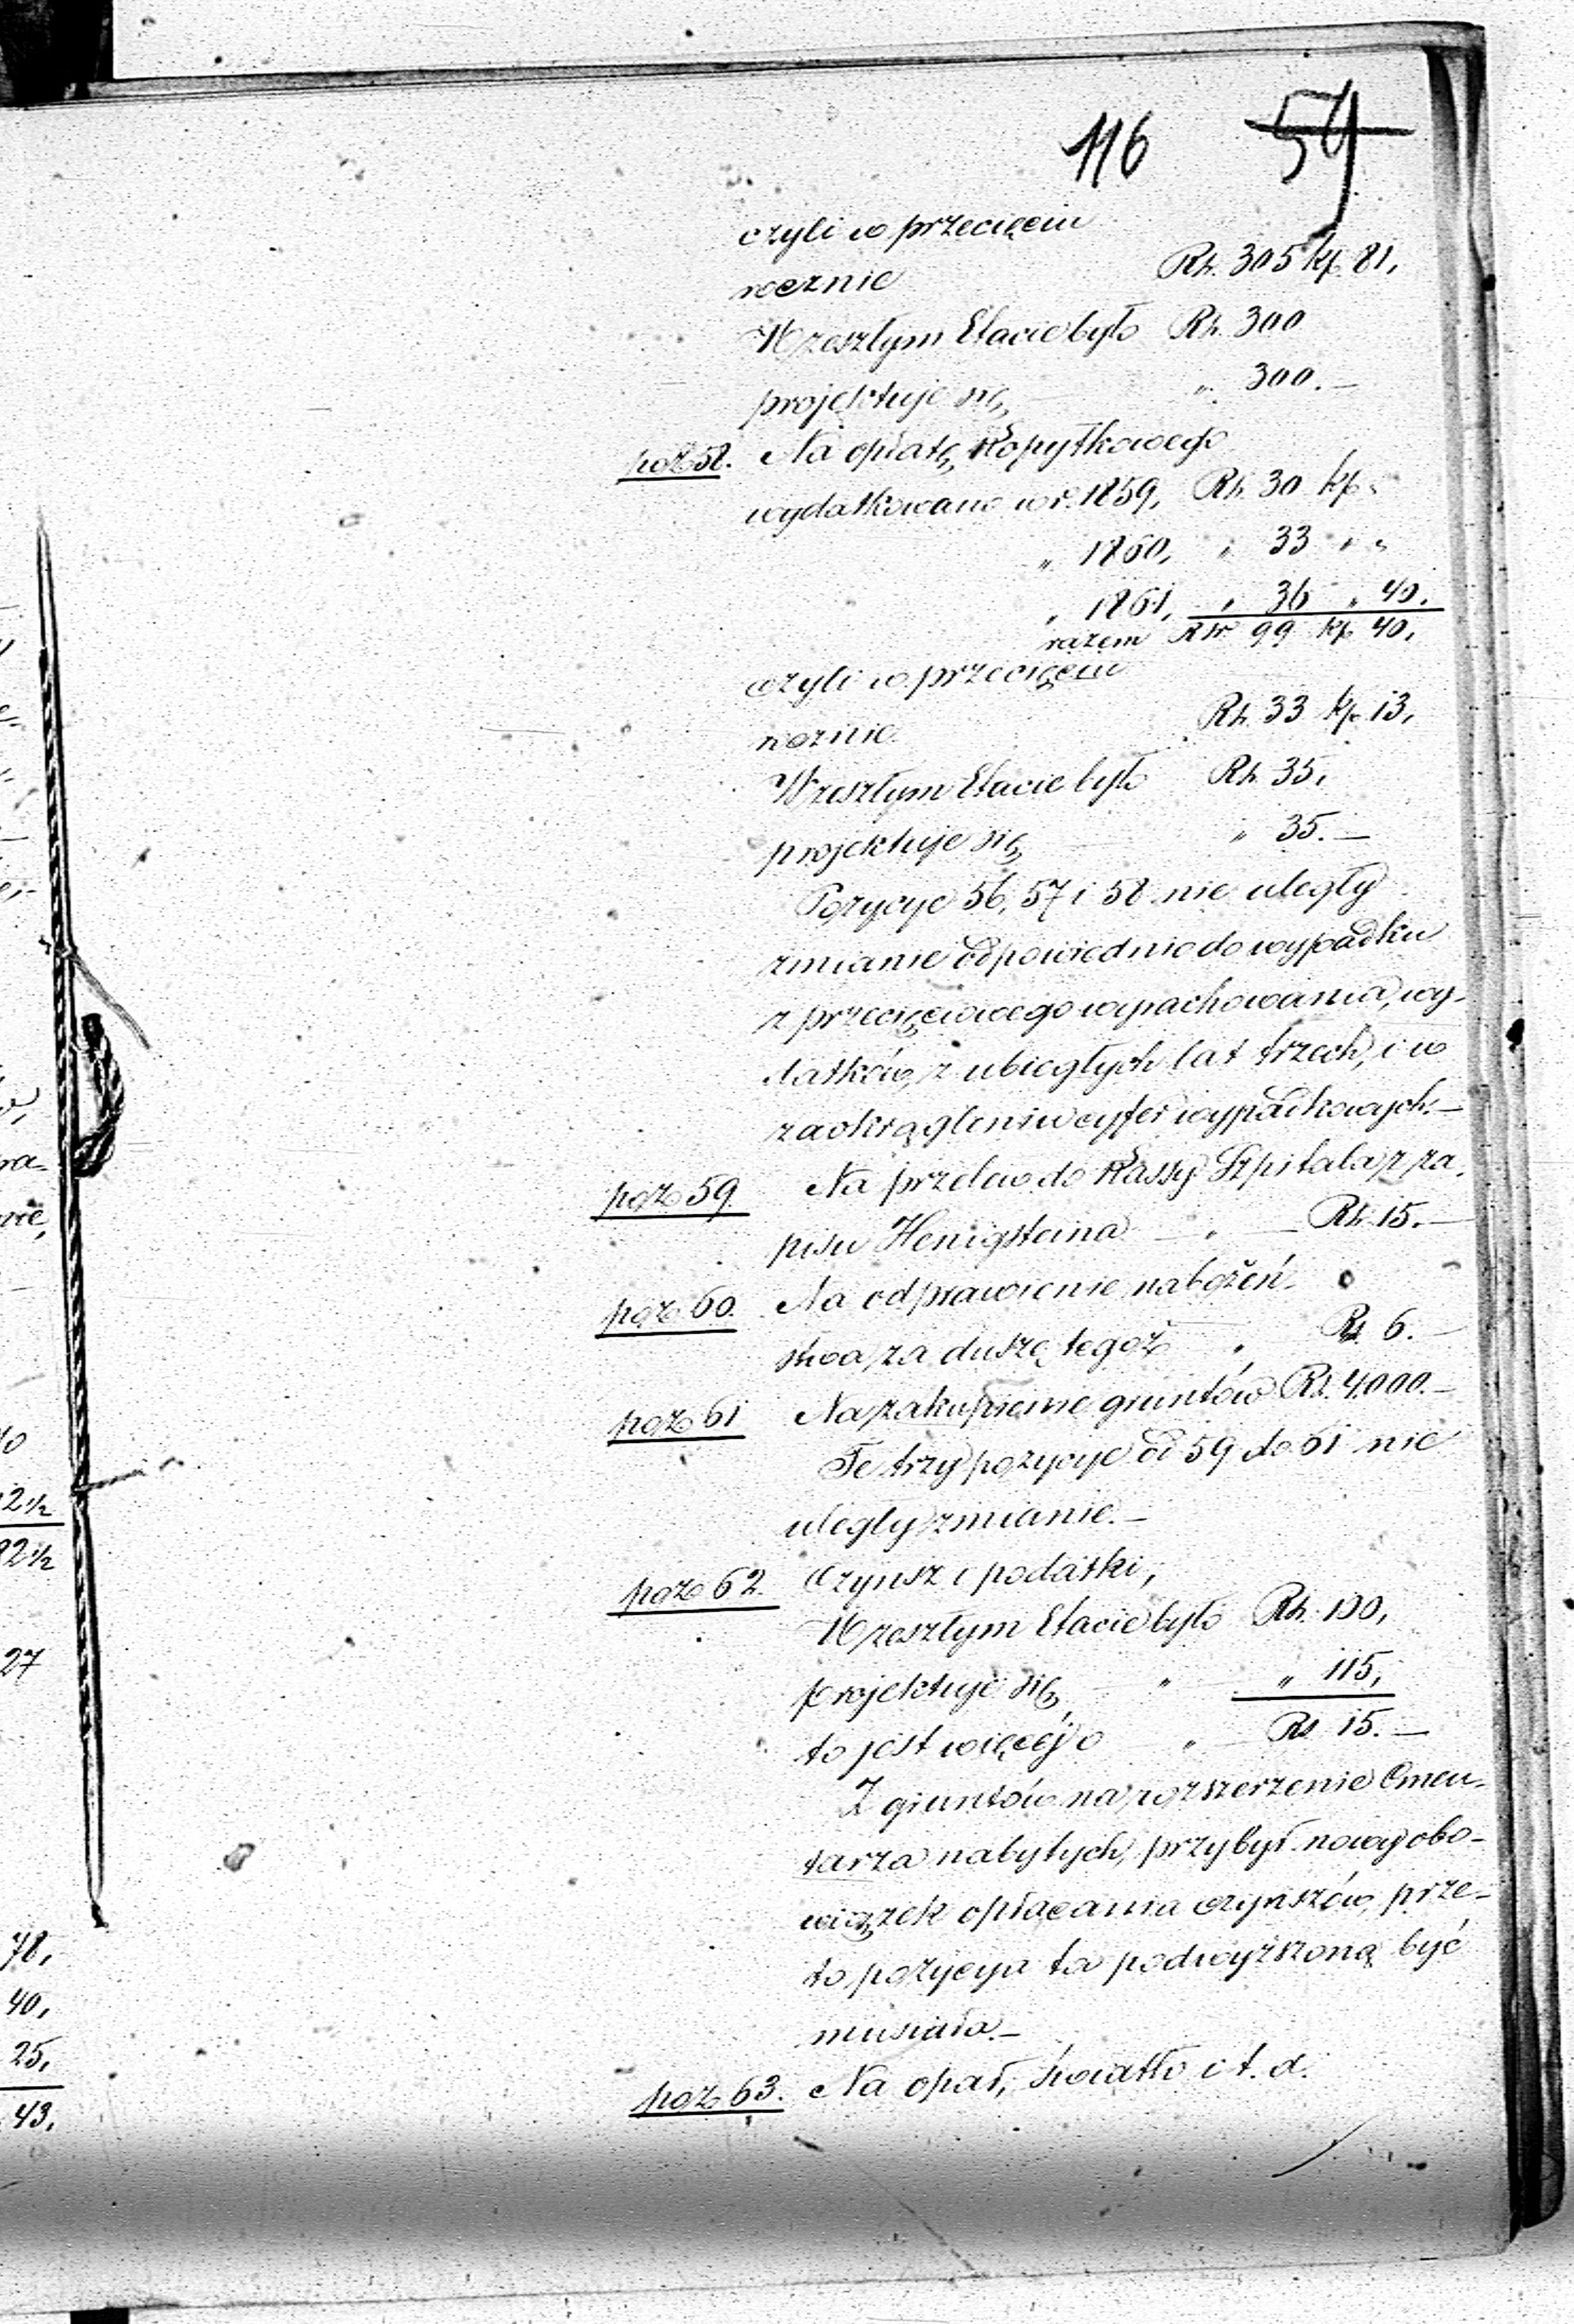 116 59
czyli w przecięciu
rocznie Rs. 305 kp. 81,
W zeszłym Etacie było Rs. 300
projektuje się „ 300.—
poz 58. Na opłatę Kopytkowego
wydatkowano w r. 1859, Rs. 30 kp „
„ 1860, „ 33 „ „
„ 1861, „ 36 „ 40.
razem Rsr 99 kp 40,
czyli w przecięciu
rocznie Rs. 33 kp. 13,
W zeszłym Etacie było Rs. 35,
projektuje się „ 35.—
Pozycye 56, 57 i 58 nie uległy
zmianie odpowiednio do wypadku
z przecięciowego wyrachowania, wy-
datków, z ubiegłych lat trzech, i w
zaokrągleniu cyfer wypadkowych.—
poz 59. Na przelew do Kassy Szpitala z za-
pisu Henigsteina „ — Rs. 15.—
poz 60. Na odprawienie nabożeń-
stwa za duszę tegoż „ Rs 6.—
poz 61 Na zakupienie gruntów Rs. 4,000.—
Te trzy pozycye od 59 do 61 nie
uległy zmianie.—
poz 62. Czynsz i podatki,
W zeszłym Etacie było Rs. 100,
projektuje się „ „ 115,
to jest więcej o „ Rs 15.—
Z gruntów na rozszerzenie Cmen-
tarza nabytych, przybył nowy obo-
wiązek opłacania czynszów, prze-
to pozycya ta podwyższoną być
musiała.—
poz 63. Na opał, światło i t. d.
2½
92½
27
78,
40,
25,
43,